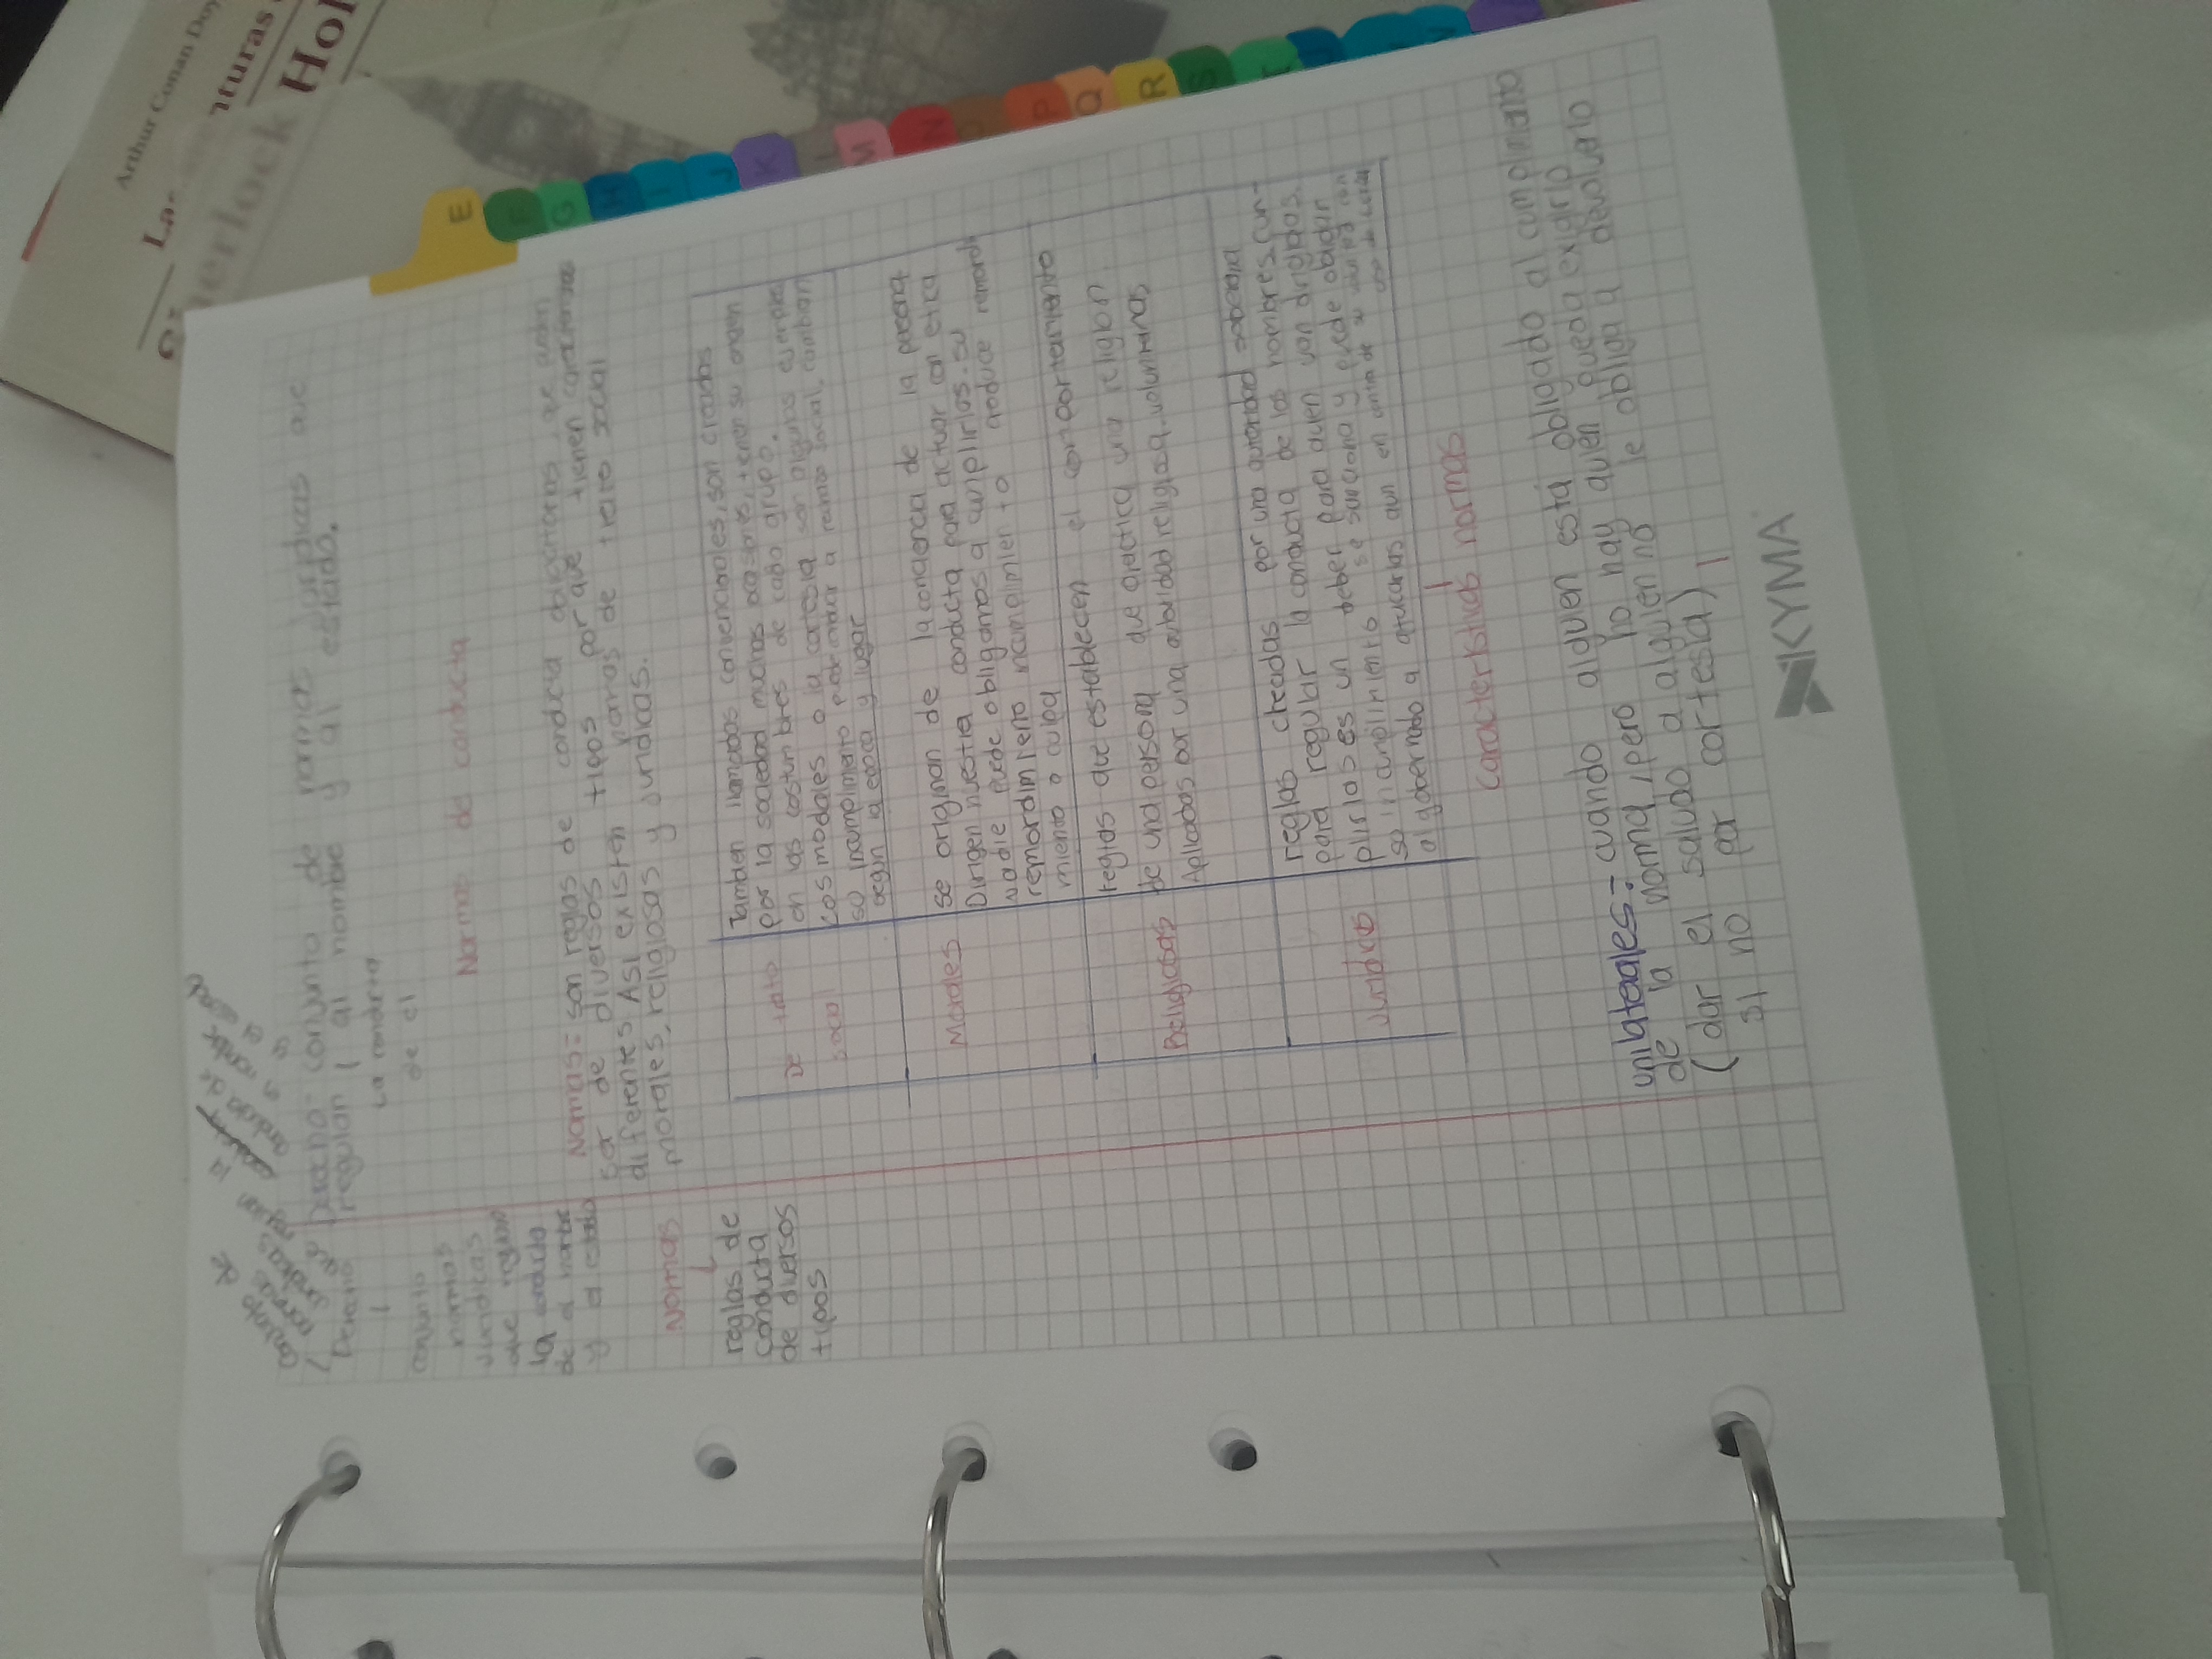 Arthur Conan Doy
La
turas
erlock
Hol
conjunto de
normas
jurídicas
regulan la
conducta de
Derecho
conjunto
normas
Juridicas
que regulan
la conducta
de el
y el estado
Normas
reglas de
conducta
de diversos
tipos
Derecho- conjunto de normas jurídicas que
regulan al nombre y al estado.
La conducta
de el
Normas de conducta
Normas: son reglas de conducta obligatorias, que
ser de diversos tipos por que tienen
diferentes Asi existen normas de trato social
morales, religiosas y Juridicas.
De trato
social
Tambien llamadas convencionales, son creadas
por la sociedad muchas ocasiones, tienen su origen
en las costumbres de cada grupo.
Los modales o la cortesía son algunos ejemplos
su incumplimiento a social, cambian
según la epoca y lugar
Morales
se originan de la conciencia de la persona
Dirigen nuestra conducta para actuar con etica
Nadie puede obligarnos a cumplirlas. su
remordimiento incumplimiento produce remordi
miento o culpa
Religiosas
reglas que establecen el comportamiento
de una persona que practica una religion.
Aplicadas por una autoridad religiosa, voluntarias
Juridicas
reglas creadas por una autoridad soberana
para regular la conducta de los hombres, cum-
plirlas es un deber para quien van dirigidas.
su incumplimiento se sanciona y puede obligar
al gobernado a aun en contra de su
Caracteristicas normas
unilaterales: cuando alguien está obligado al cumplimiento
de la norma, pero no hay quien pueda exigirlo
(dar el saludo a alguien no le obliga a devolverlo
si no por cortesía)
KYMA
E
F
G
H
I
J
K
L
M
N
O
P
Q
R
S
T